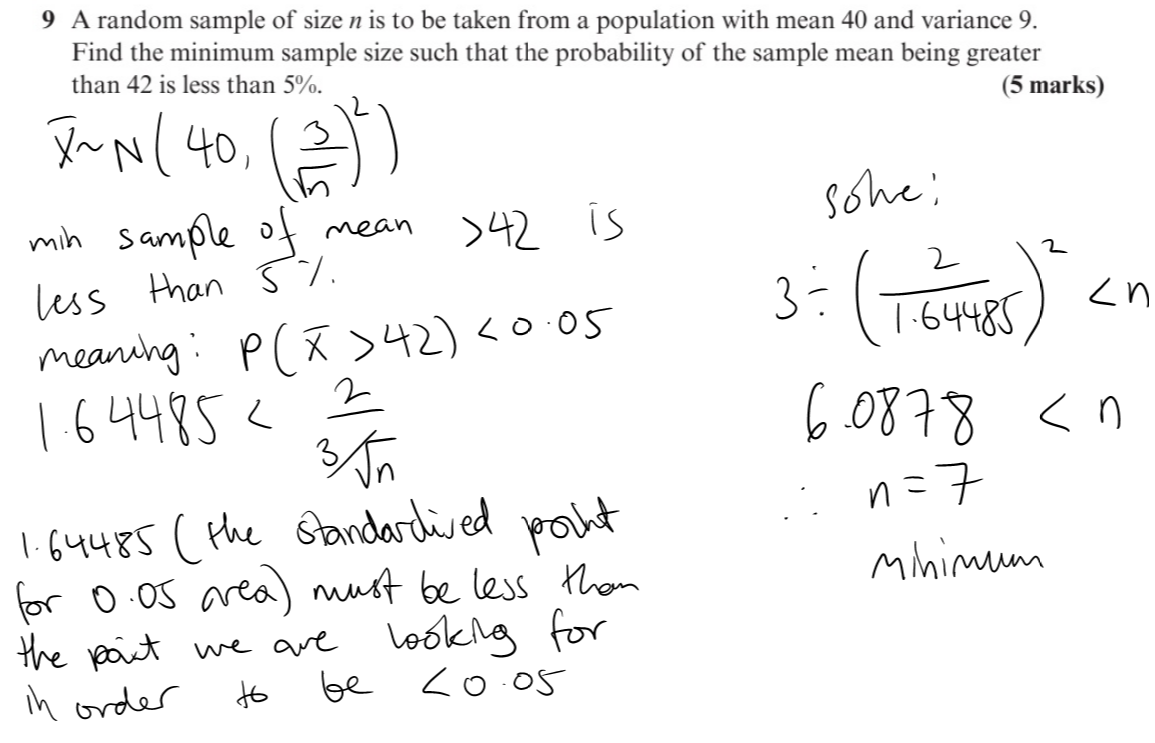 9 A random sample of size n is to be taken from a population with mean 40 and variance 9.
Find the minimum sample size such that the probability of the sample mean being greater
than 42 is less than 5%. (5 marks)
X̄~N(40, (3/√n)²)
min sample of mean >42 is
less than 5%.
meaning: P(x̄ >42) <0.05
1.64485 < 2/(3/√n)
1.64485 (the standardised point
for 0.05 area) must be less than
the point we are looking for
in order to be <0.05
solve:
3÷(2/1.64485)² <n
6.0878 <n
∴ n=7
minimum